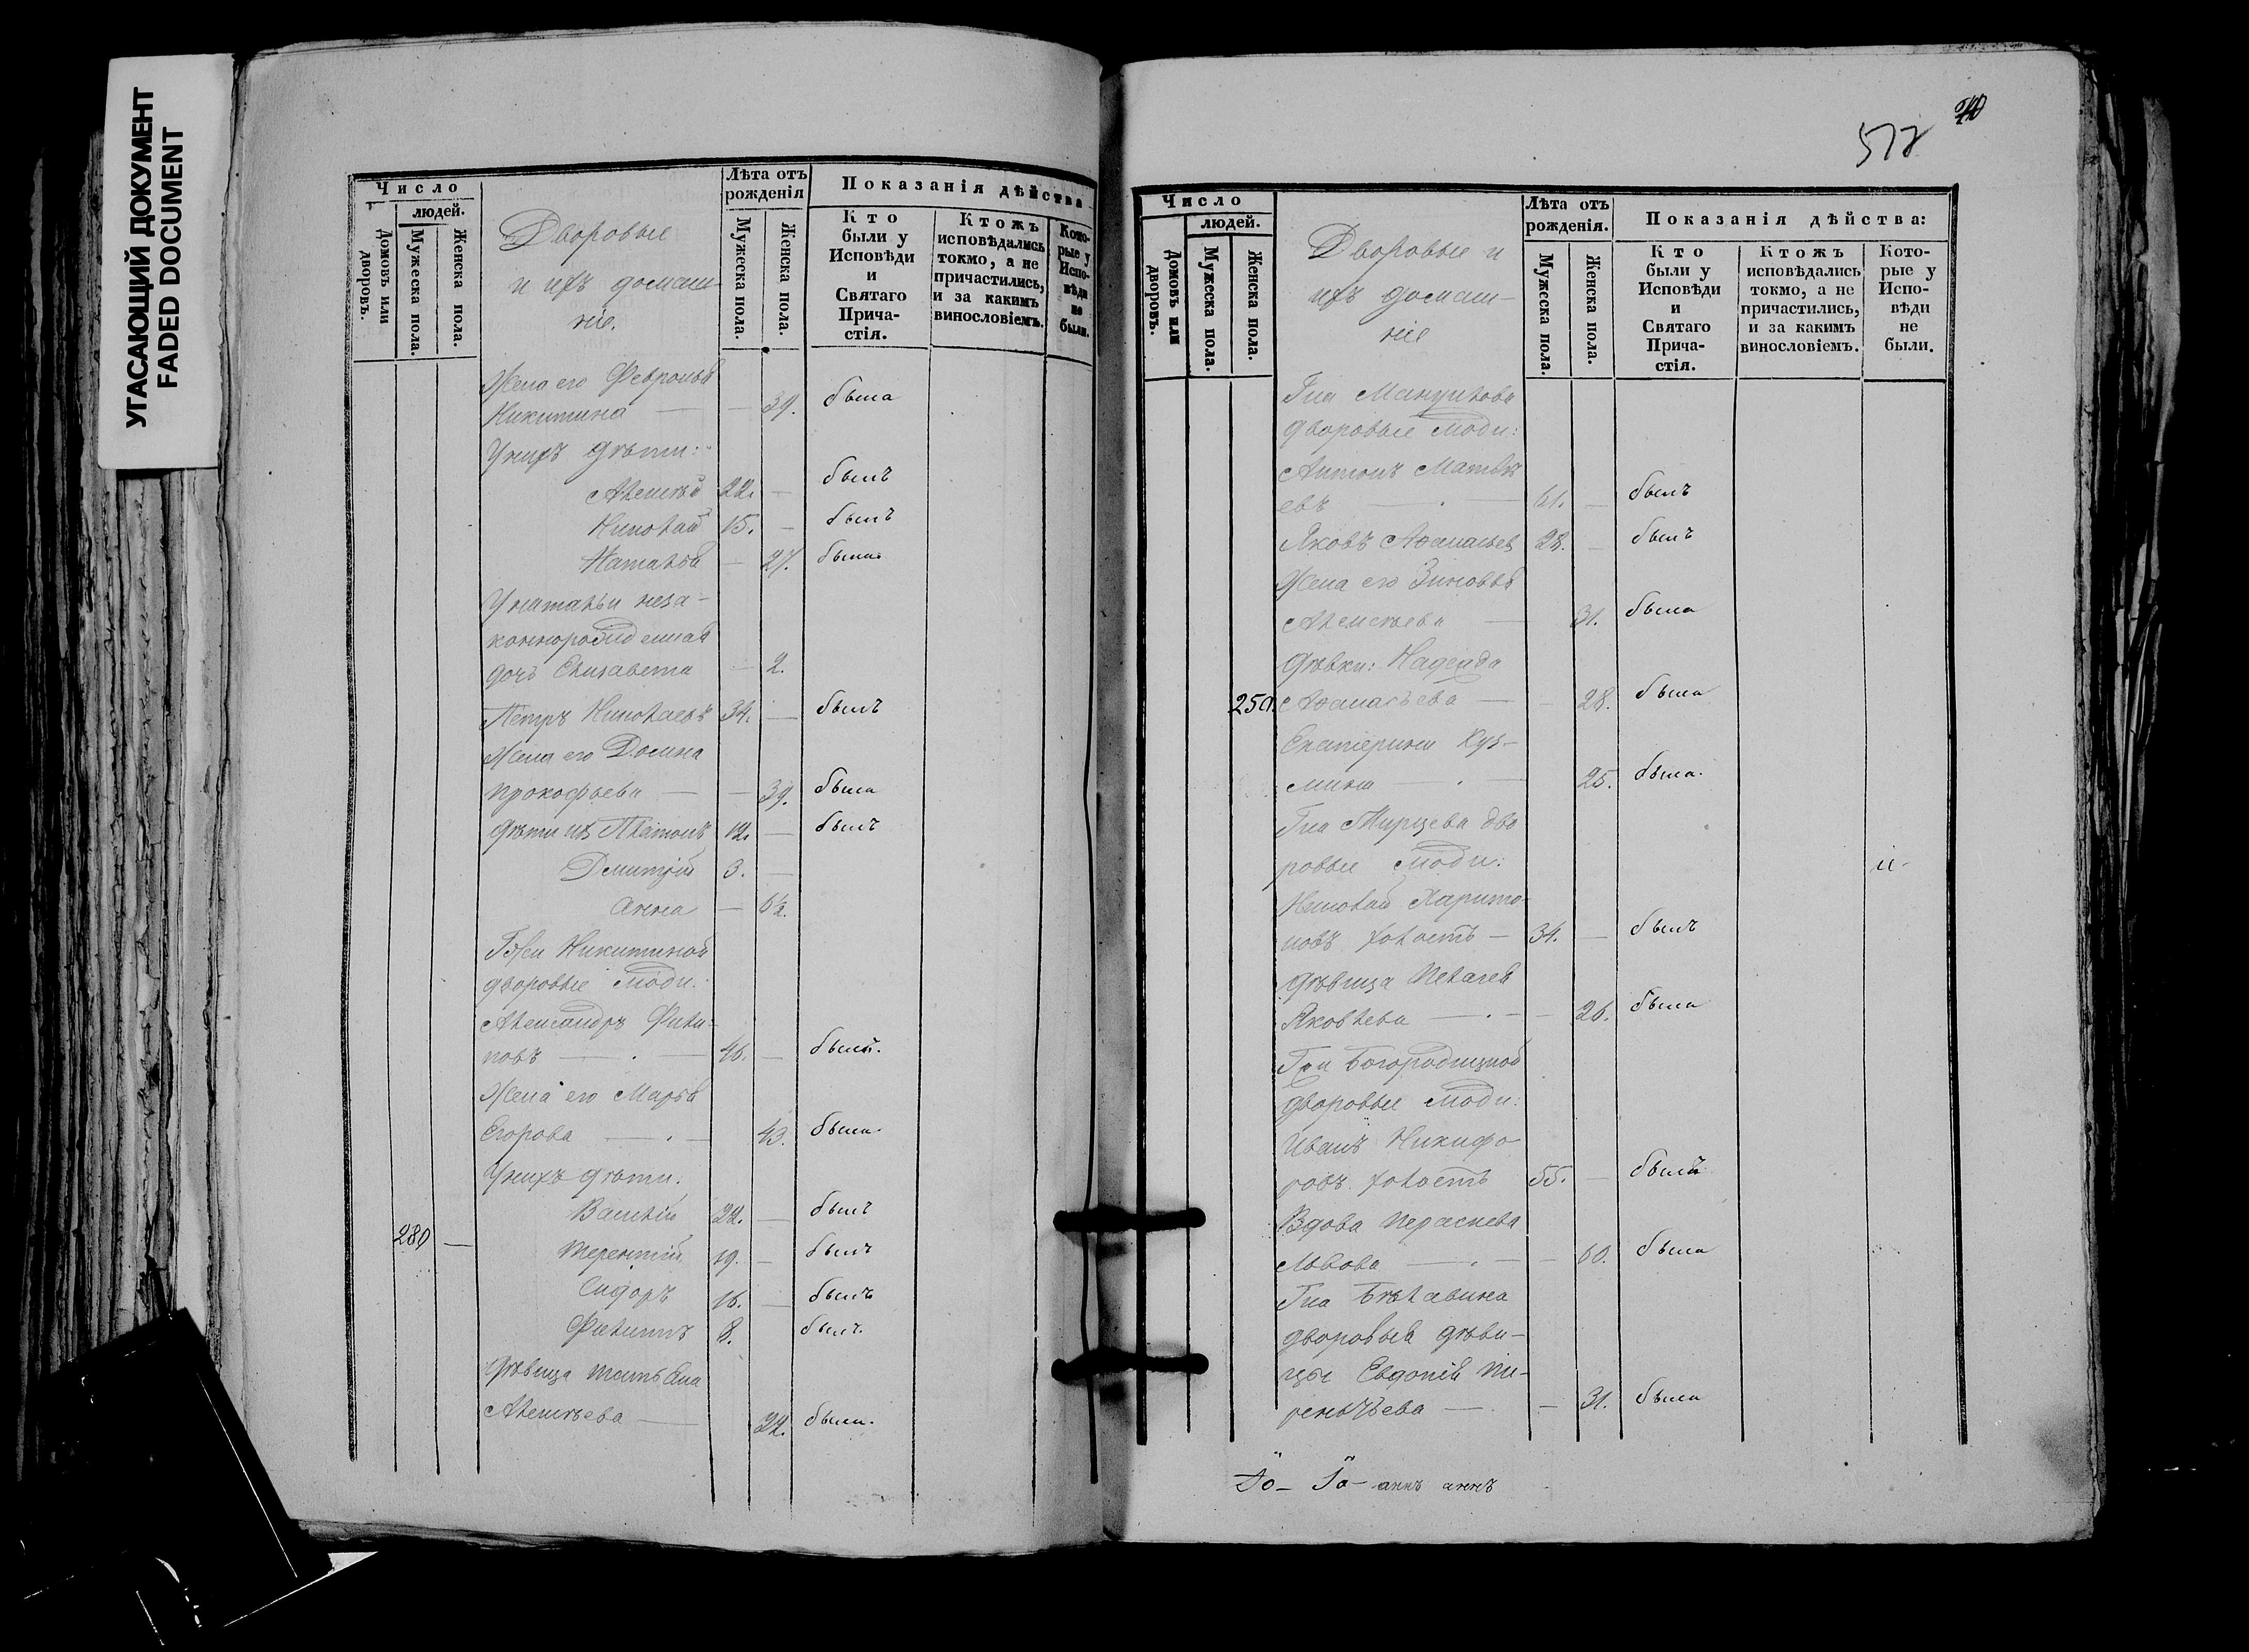 УГАСАЮЩИЙ ДОКУМЕНТ
FADED DOCUMENT
Число
людей.
Домовъ или дворовъ.
Мужеска пола.
Женска пола.
Дворовые
и ихъ домаш-
ніе.
Лѣта отъ рожденія
Мужеска пола.
Женска пола.
Показанія дѣйства
Кто были у Исповѣди и Святаго Прича-стія.
Ктожъ исповѣдались токмо, а не причастились, и за какимъ винословіемъ.
Кото-рые у Испо-вѣди не были.
Жена его Февронья
Никитина — — 39. была
У нихъ дѣти:
Алексѣй 22. — былъ
Николай 15. — былъ
Наталья — 27. была
У натальи неза-
коннорожденная
дочь Елизавета — 2.
Петръ Николаевъ 34. — былъ
Жена его Домна
Прокофьева — — 39. была
Дѣти ихъ Платонъ 12. — былъ
Дмитрій 3. —
Анна —
Гжи Никитиной
дворовые люди:
Александръ Фили-
повъ — 46. — былъ.
Жена его Марья
Егорова — 43. была.
У нихъ дѣти.
Василій 22. — былъ
280 — Терентій 19. — былъ
Сидоръ 16. — былъ
Филиппъ 8. былъ.
Дѣвица Татьяна
Алексѣева — 22. была.
40
572
Число
людей.
Домовъ или дворовъ.
Мужеска пола.
Женска пола.
Дворовые и
ихъ домаш-
ніе
Лѣта отъ рожденія.
Мужеска пола.
Женска пола.
Показанія дѣйства:
Кто были у Исповѣди и Святаго Прича-стія.
Ктожъ исповѣдались токмо, а не причастились, и за какимъ винословіемъ.
Кото-рые у Испо-вѣди не были.
Гна
дворовые люди:
Антонъ Матвѣ
евъ — 61. — былъ
Яковъ Афанасьев 28. — былъ
Жена его Зиновья
Алексѣева — 31. была
Дѣвки: Надежда
250. Афанасьева — — 28. была
Екатерина Куз-
мина — 25. была.
Гна дво
ровые люди:
Николай Харито-
новъ холостъ — 34. — былъ
Дѣвица Пелагея
Яковлева — — 26. была
Гжи Богородицкой
дворовые люди:
Иванъ Никифо
ровъ холостъ 55. — былъ
Вдова
Львова — — 60. была
Гна Бѣлавина
дворовыя дѣви-
цы Евдокія
— — 31. была
Іо- Іо- аннъ аннъ